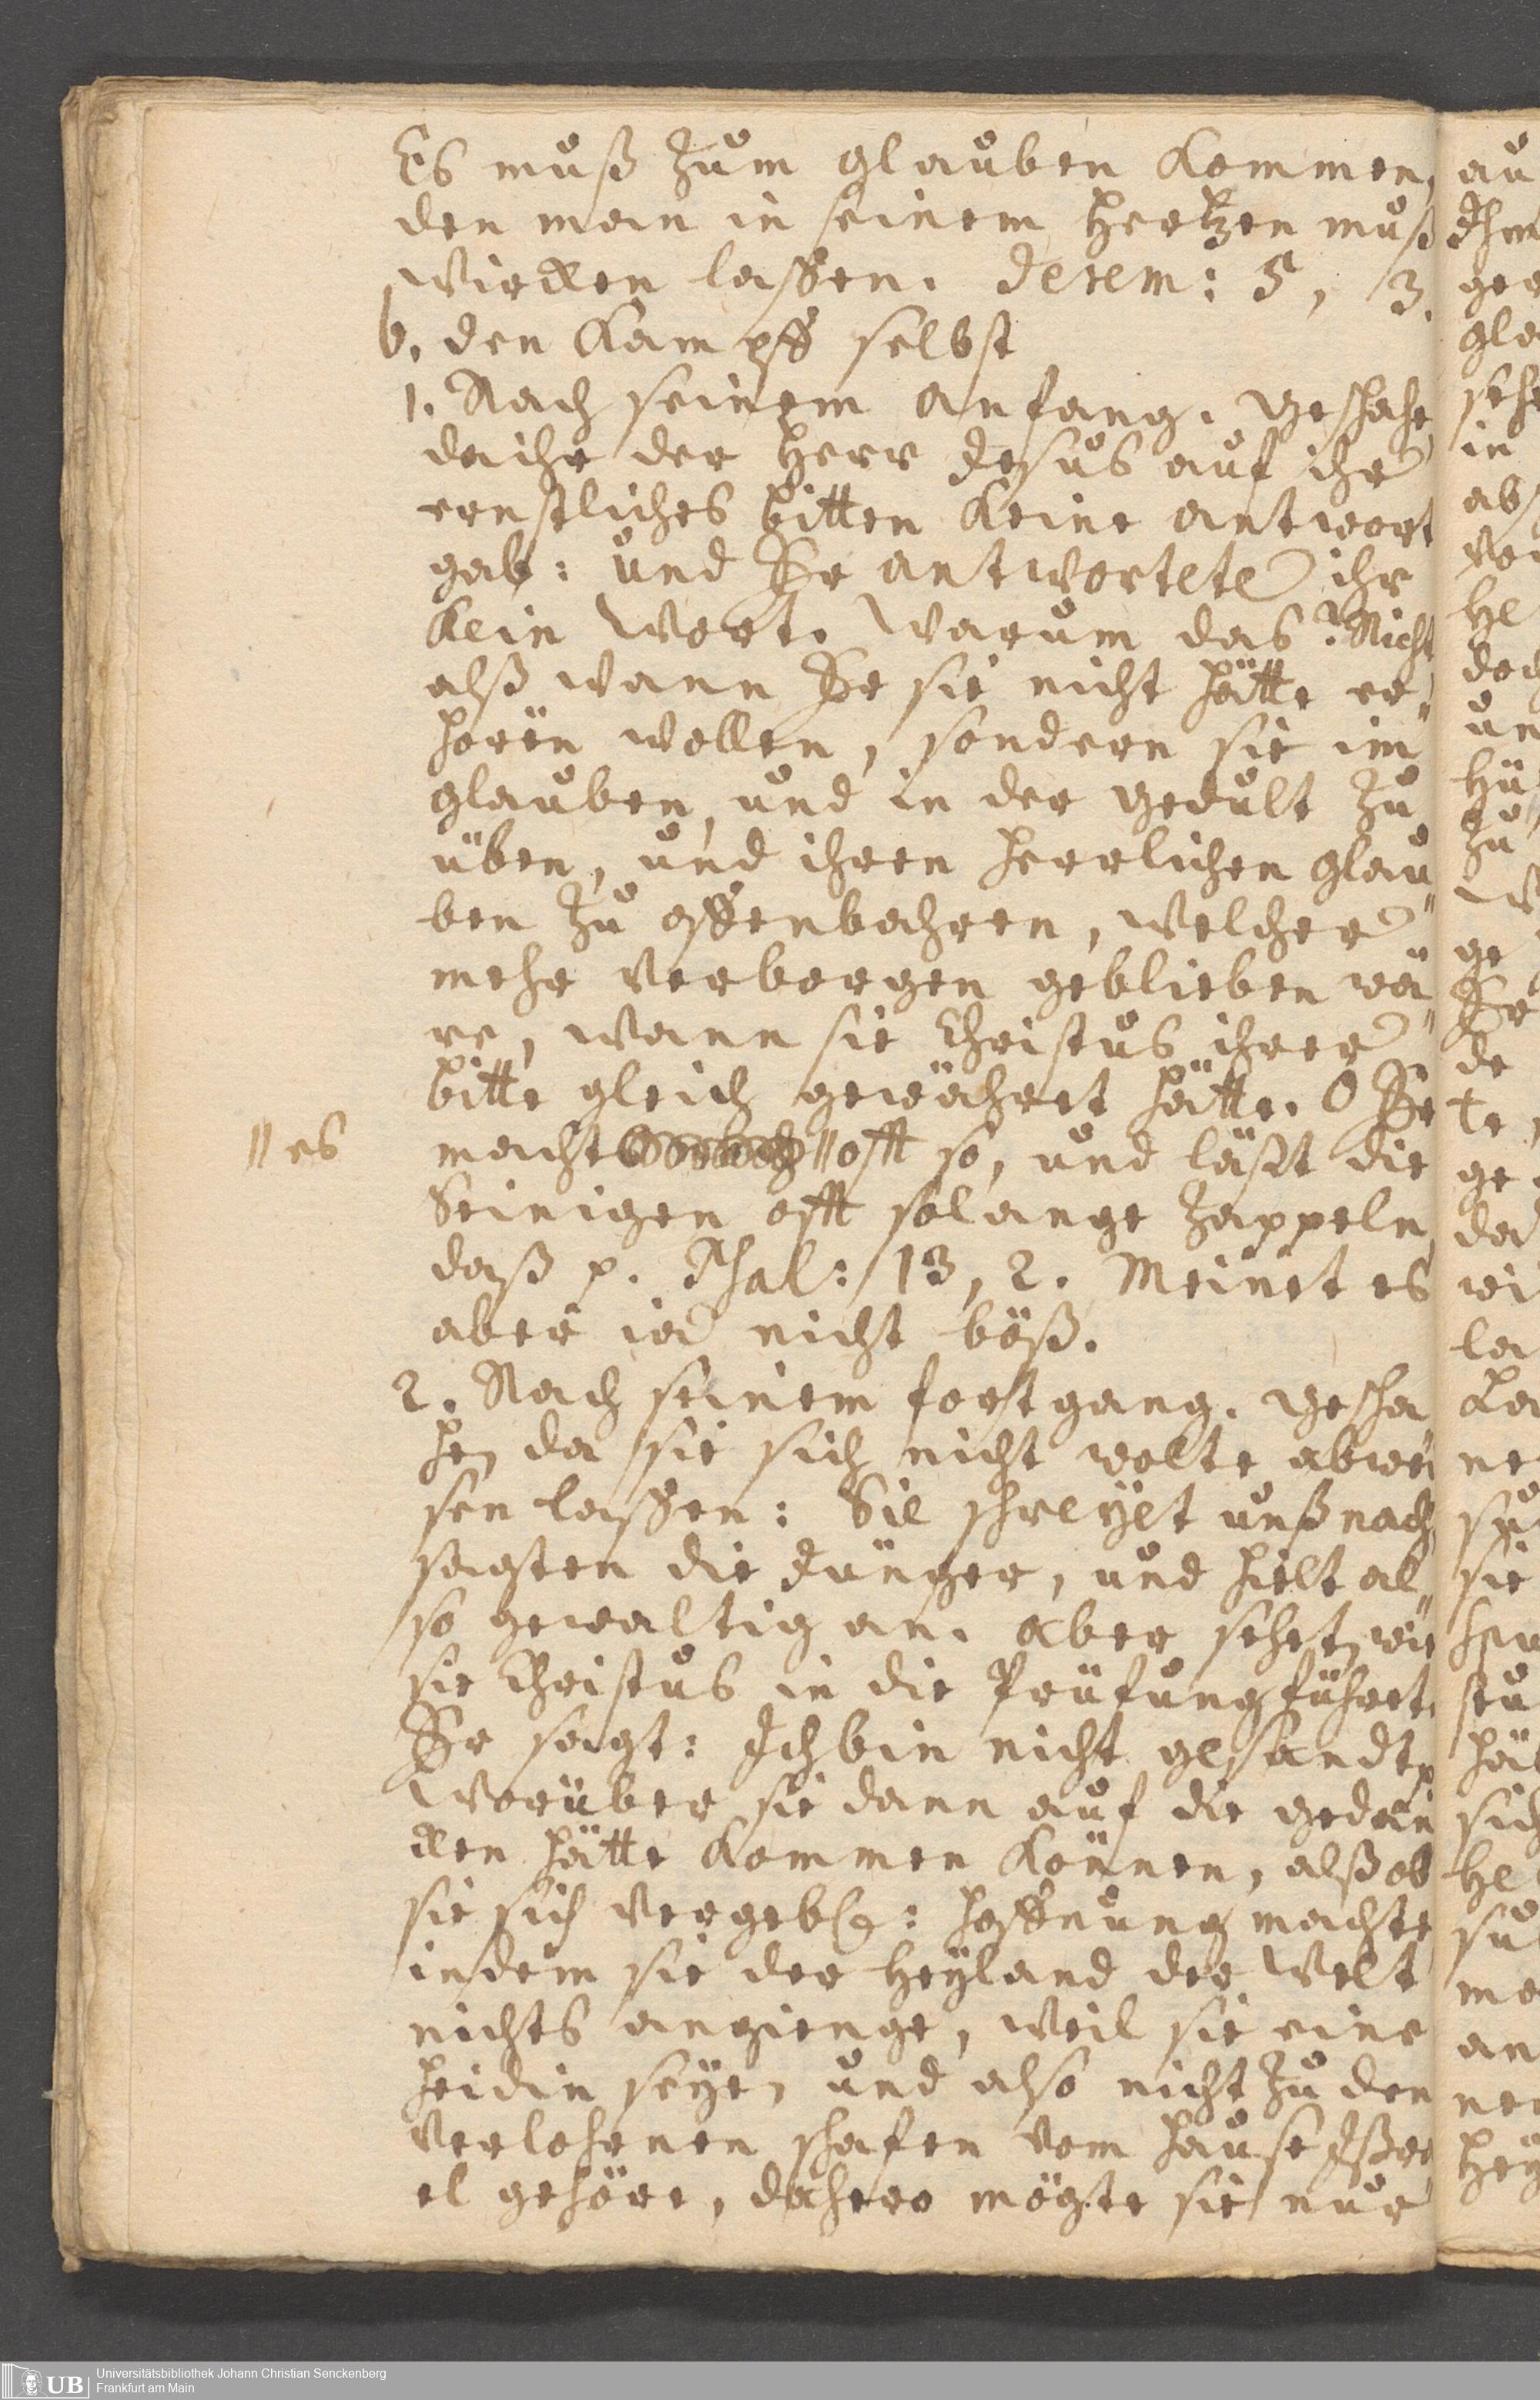 Es muß zum glauben kommen,
den man in seinem Hertzen muß
wircken laßen. Jerem: 5, 3.
b. den Kampff selbst
1. Nach seinem anfang. Geschahe
da ihr der Herr Jesus auf ihr
ernstliches bitten keine antwort
gab: und Er antwortete ihr
kein Wort. Warum das? Nicht
alß wann Er sie nicht hätte er„
hören wollen, sondern sie im
glauben, und in der Gedult zu
üben, und ihren herrlichen glau„
ben zu offenbahren, welcher
mehr verborgen geblieben wä„
re, wann sie Christus ihrer
bitte gleich gewähret hätte. O Er
// es
macht // offt so, und läßt die
Seinigen offt solange zappeln,
daß p. Psal: 13, 2. Meinet es
aber ia nicht böß.
2. Nach seinem fortgang. Gescha
he, da sie sich nicht wolte abwei
sen laßen: Sie schreyet unß nach,
sagten die Jünger, und hielt al„
so gewaltig an. aber sehet, wie
sie Christus in die Prüfung führet.
Er sagt: Ich bin nicht gesandt p
Worüber sie dann auf die gedan
cken hätte kommen können, alß ob
sie sich vergebl: hoffnung machte
indem sie der Heyland der Welt
nichts angienge, weil sie eine
Heidin seye, und also nicht zu den
verlohrnen schafen vom hause Ißra
el gehöre, dahero mögte sie nur
Universitätsbibliothek Johann Christian Senckenberg
Frankfurt am Main
UB